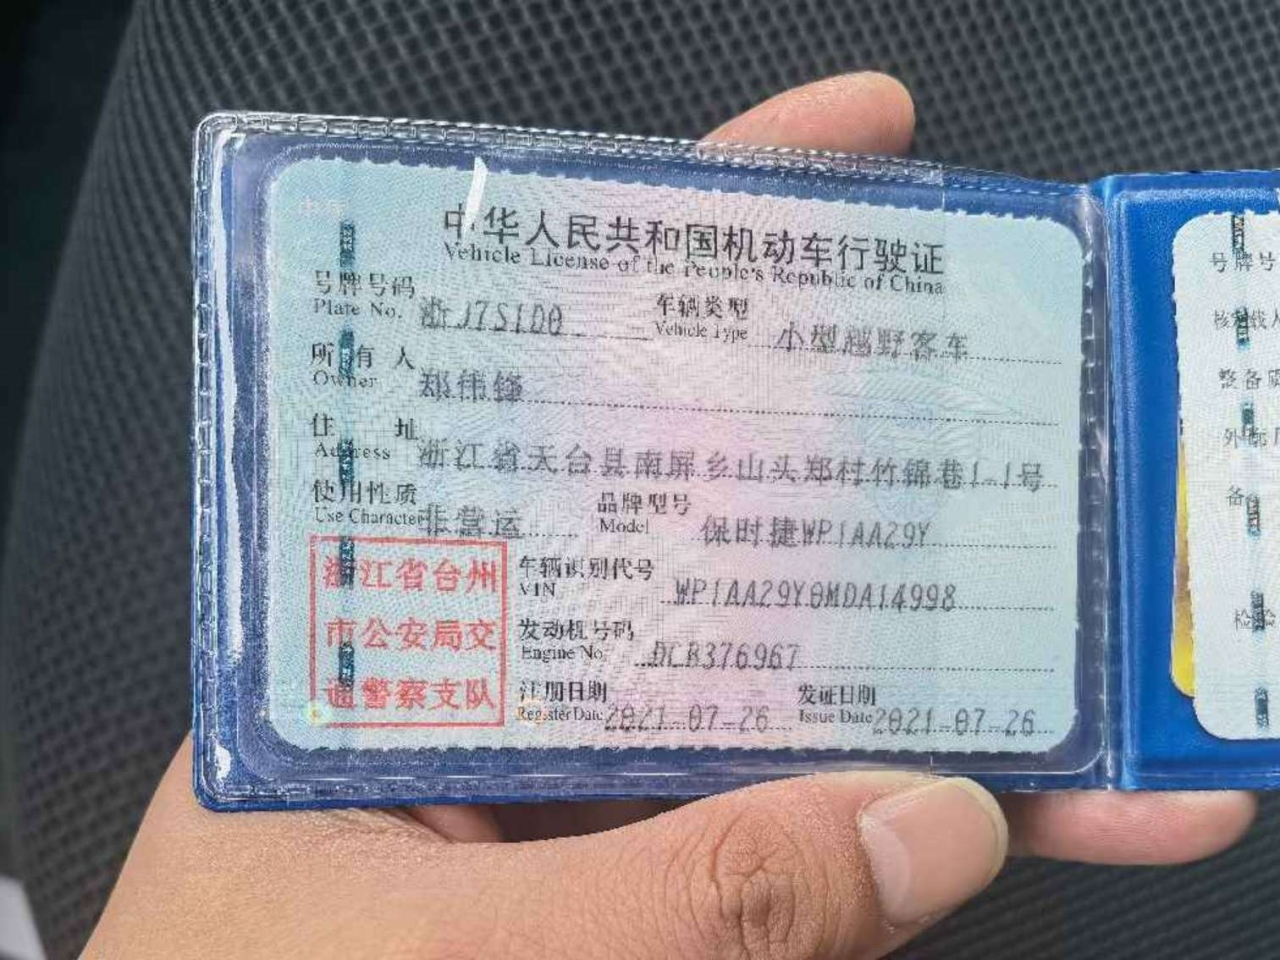 中华人民共和国机动车行驶证
Vehicle License of the People's Republic of China
号牌号码 浙J7S1D0 车辆类型 小型越野客车
Plate No. Vehicle Type
所有人 郑伟锋
Owner
住址 浙江省天台县南屏乡山头郑村竹锦巷1-1号
Address
使用性质 非营运 品牌型号 保时捷WP1AA29Y
Use Character Model
浙江省台州
市公安局交
通警察支队
车辆识别代号 WP1AA29Y0MDA14998
VIN
发动机号码 DCB376967
Engine No.
注册日期 2021-07-26 发证日期 2021-07-26
Register Date Issue Date
号牌号
核载人
整备质
外部
备
检验